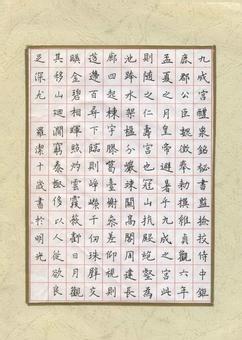 九成宮醴泉銘秘書監撿挍侍中鉅
鹿郡公臣魏徵奉勅撰維貞觀六年
孟夏之月皇帝避暑乎九成之宮此
則隨之仁壽宮也冠山抗殿絕壑為
池跨水架楹分巖竦闕高閣周建長
廊四起棟宇膠葛臺榭參差仰視則
迢遰百尋下臨則崢嶸千仞珠璧交
暎金碧相暉照灼雲霞蔽虧日月觀
其移山迴澗窮泰極侈以人從欲良
足深尤 羅潔十歲書於明光